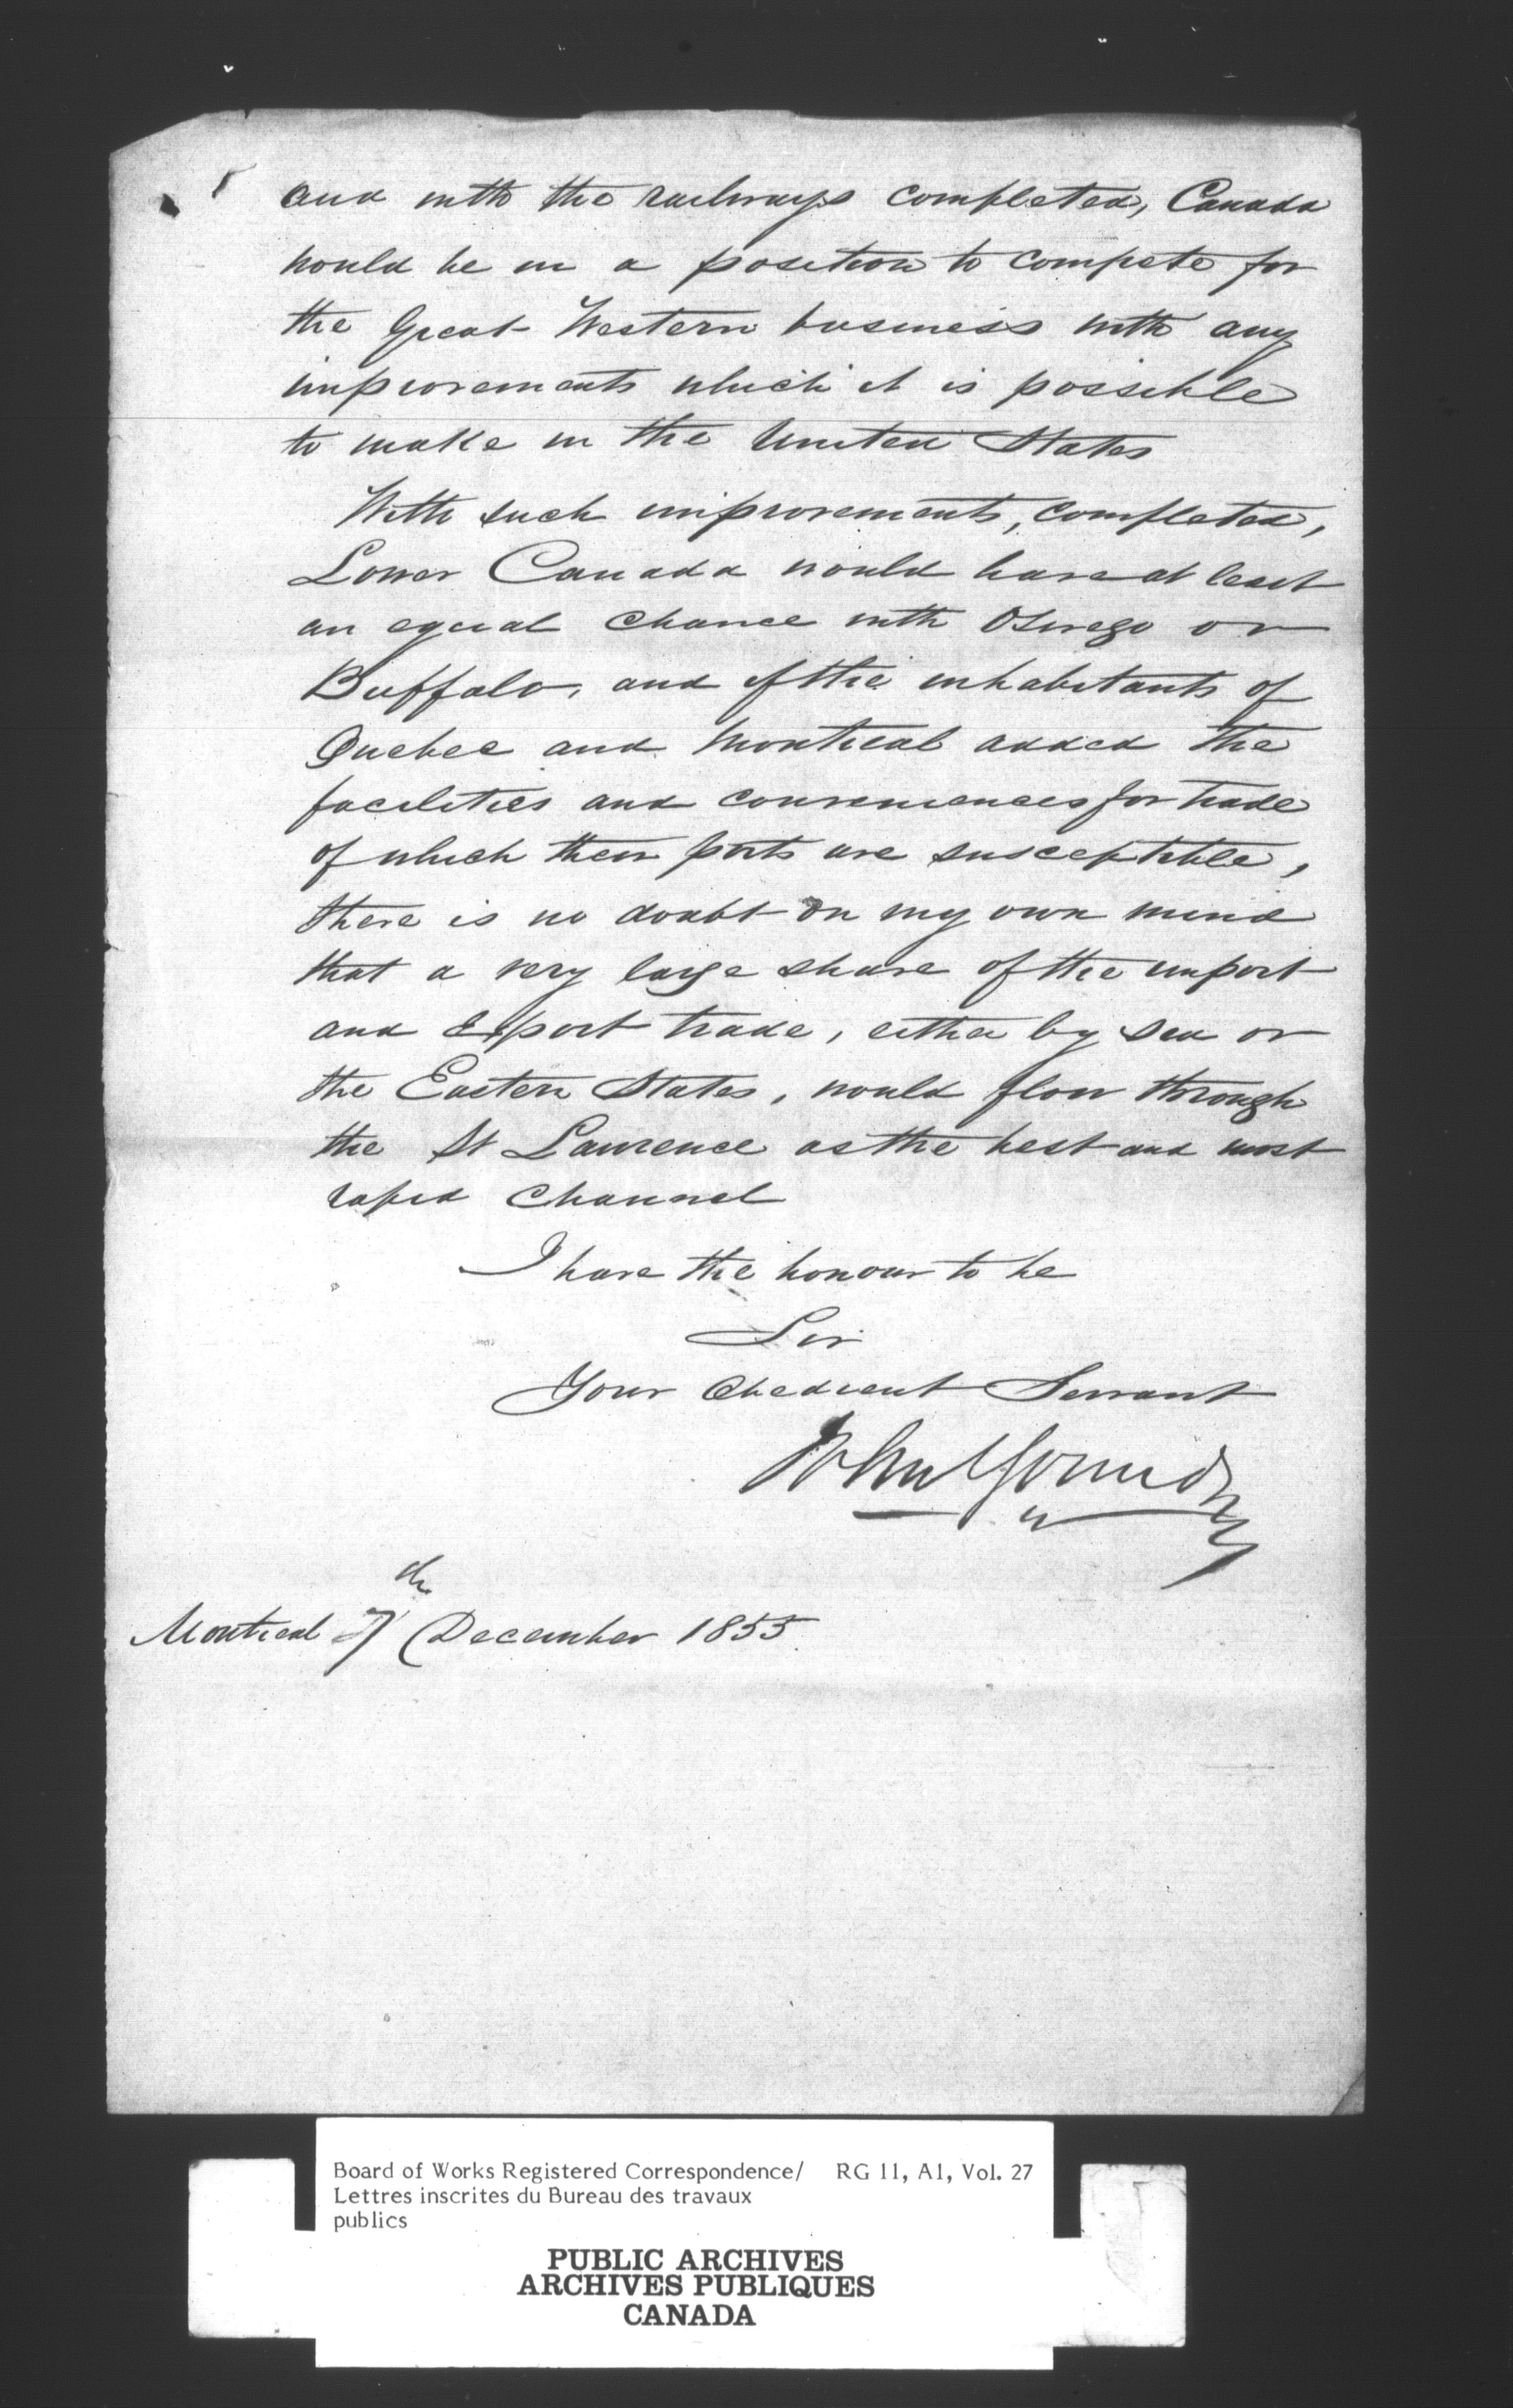 and with the railways completed, Canada
would be in a position to compete for
the Great Western business with any
improvements which it is possible
to make in the United States
With such improvements, completed,
Lower Canada would have at least
an equal chance with Oswego or
Buffalo, and if the inhabitants of
Quebec and Montreal added the
facilities and conveniences for trade
of which their ports are susceptible,
there is no doubt on my own mind
that a very large share of the import
and export trade, either by sea or
the Eastern States, would flow through
the St Lawrence as the best and most
rapid channel
I have the honour to be
Sir
Your Obedient Servant
John Young
Montreal 7th December 1855
Board of Works Registered Correspondence/ RG 11, A1, Vol. 27
Lettres inscrites du Bureau des travaux
publics
PUBLIC ARCHIVES
ARCHIVES PUBLIQUES
CANADA